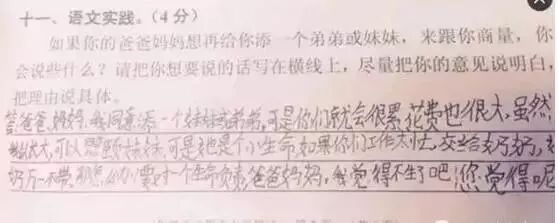 十一、语文实践。(4分)
如果你的爸爸妈妈想再给你添一个弟弟或妹妹，来跟你商量，你
会说些什么？请把你想要说的话写在横线上，尽量把你的意见说明白，
把理由说具体。
答:爸爸,妈妈,我同意添一个妹妹或弟弟,可是你们就会很累,花费也很大,虽然
我长大,可以照顾妹妹,可是她是个小生命如果你们工作太忙,交给奶奶,
奶万一不要对一个生命负责,爸爸妈妈,我觉得不生了吧!您觉得呢